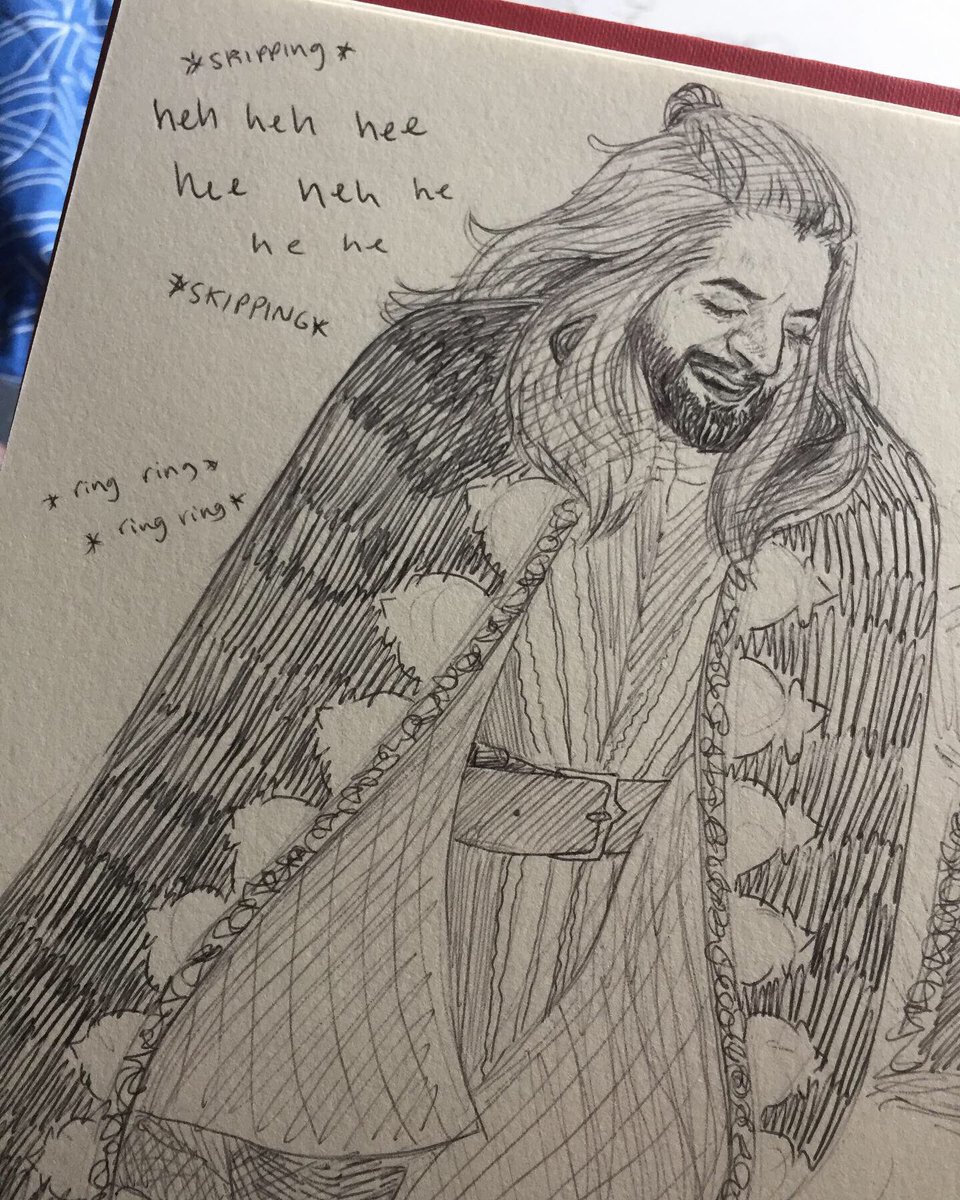 *SKIPPING*
heh heh hee
hee heh he
he he
*SKIPPING*
*ring ring*
*ring ring*